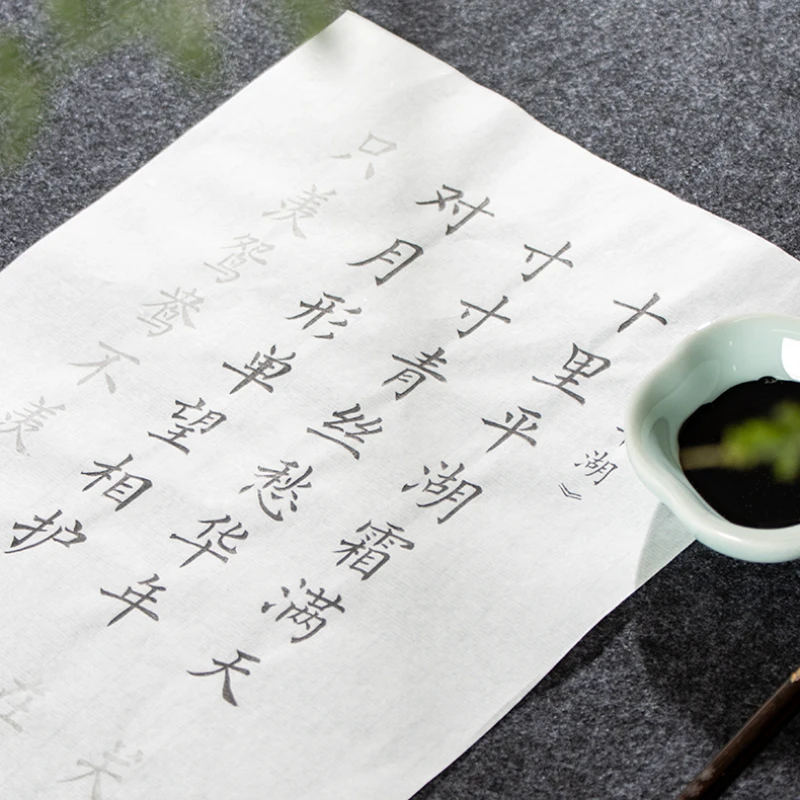 湖》
十里平湖霜满天
寸寸青丝愁华年
对月形单望相护
只羡鸳鸯不羡